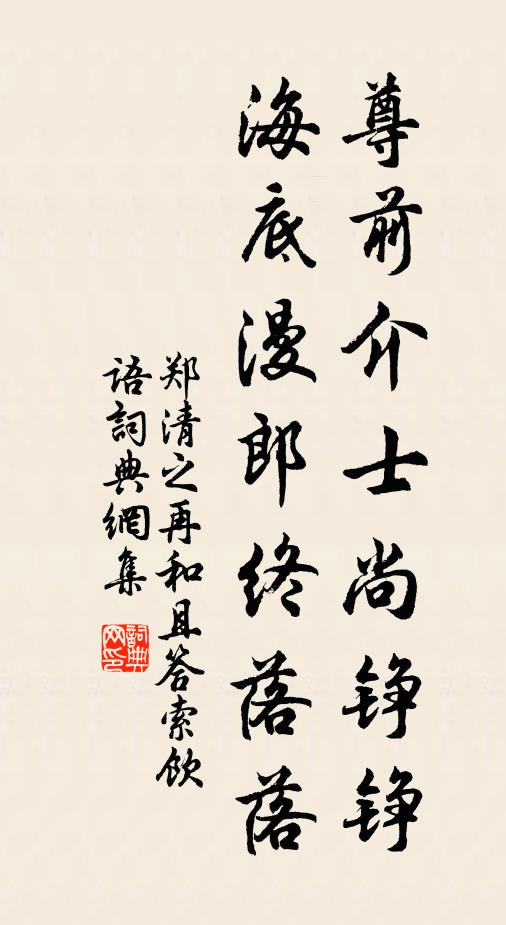 尊前介士尚铮铮
海底漫郎终落落
郑清之再和且答索饮
语詞典網集
詞典网印